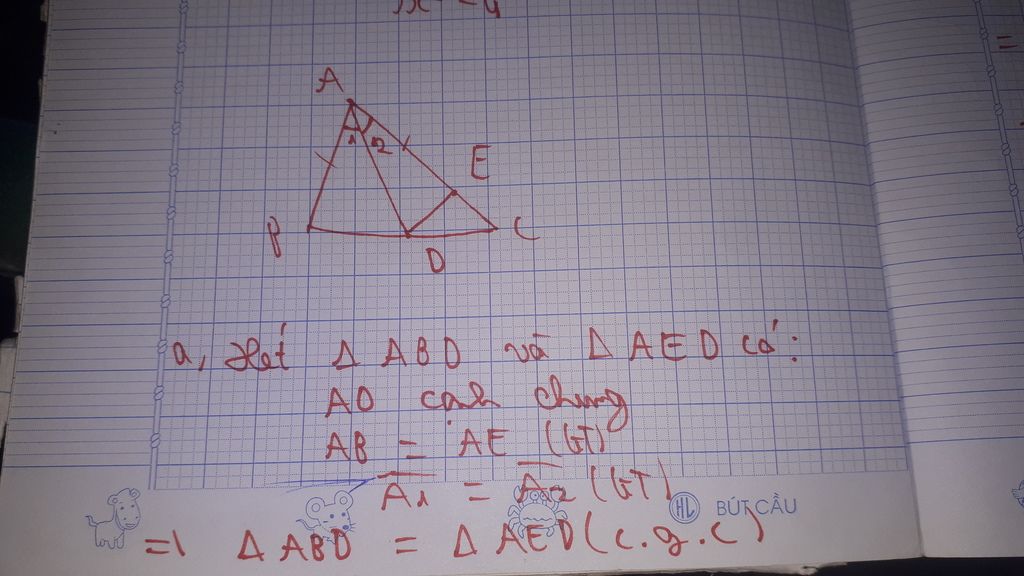 A
1 2
E
B
C
D
a, Xét Δ ABD và Δ AED có:
AD cạnh chung
AB = AE (GT)
A1 = A2 (GT)
BÚT CẦU
=> Δ ABD = Δ AED (c.g.c)